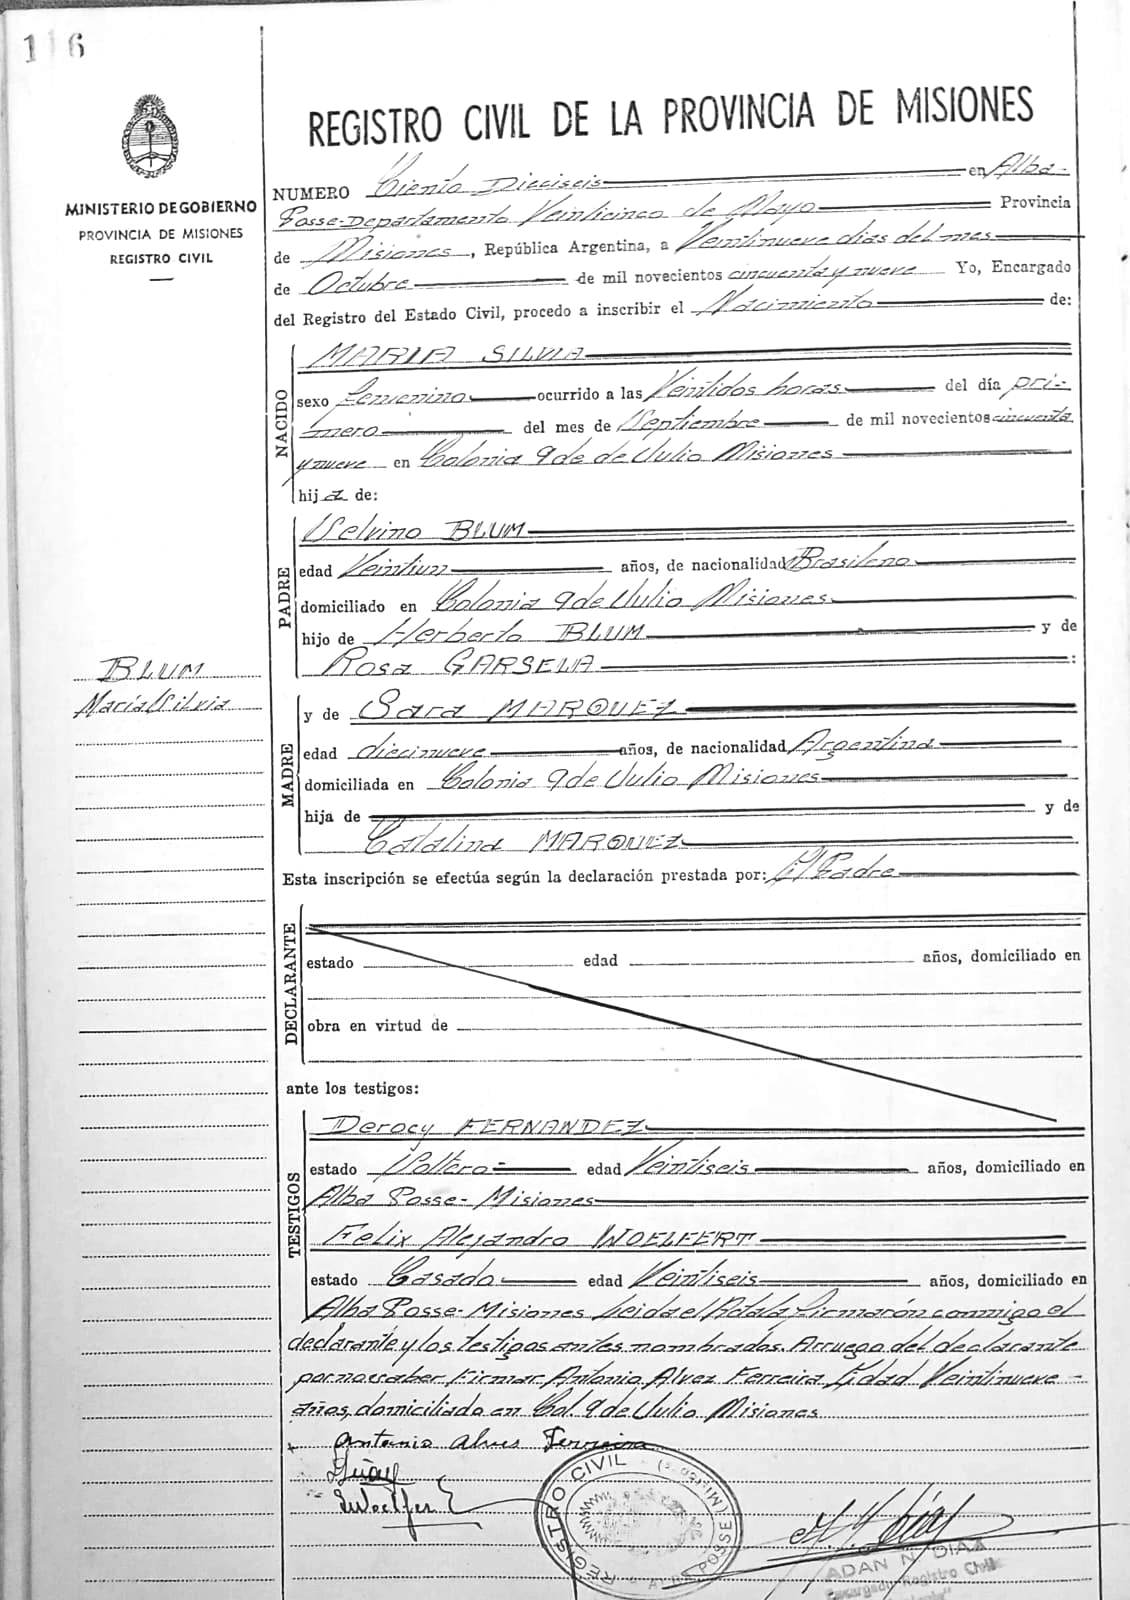 116
MINISTERIO DE GOBIERNO
PROVINCIA DE MISIONES
REGISTRO CIVIL
REGISTRO CIVIL DE LA PROVINCIA DE MISIONES
NUMERO Ciento Dieciseis en Alba-
Posse-Departamento Veinticinco de Mayo Provincia
de Misiones, República Argentina, a Veintinueve dias del mes
de Octubre de mil novecientos cincuenta y nueve Yo, Encargado
del Registro del Estado Civil, procedo a inscribir el Nacimiento de:
NACIDO
MARIA SILVIA
sexo femenino ocurrido a las Veintidos horas del día pri-
mero del mes de Septiembre de mil novecientos cincuenta
y nueve en Colonia 9 de de Julio Misiones
hija de:
PADRE
Selvino BLUM
edad Veintiun años, de nacionalidad Brasileno
domiciliado en Colonia 9 de Julio Misiones
hijo de Herberto BLUM y de
Rosa GARSELIA:
BLUM
María Silvia
MADRE
y de Sara MARQUEZ
edad diecinueve años, de nacionalidad Argentina
domiciliada en Colonia 9 de Julio Misiones
hija de y de
Catalina MARQUEZ
Esta inscripción se efectúa según la declaración prestada por: El Padre
DECLARANTE
estado edad años, domiciliado en
obra en virtud de
ante los testigos:
TESTIGOS
Deracy FERNANDEZ
estado Soltero- edad Veintiseis años, domiciliado en
Alba Posse- Misiones
Felix Alejandro WOELFERT
estado Casado edad Veintiseis años, domiciliado en
Alba Posse- Misiones Leida el Acta la firmarón conmigo el
declarante y los testigos antes nombrados. Arruego del declarante
por no saber Firmar Antonio Alvez Ferreira Edad Veintinueve-
años, domiciliado en Col. 9 de Julio Misiones
Antonio Alves Ferreira
REGISTRO CIVIL
ALBA POSSE (Misiones)
ADAN N. DIAZ
Encargado Registro Civil